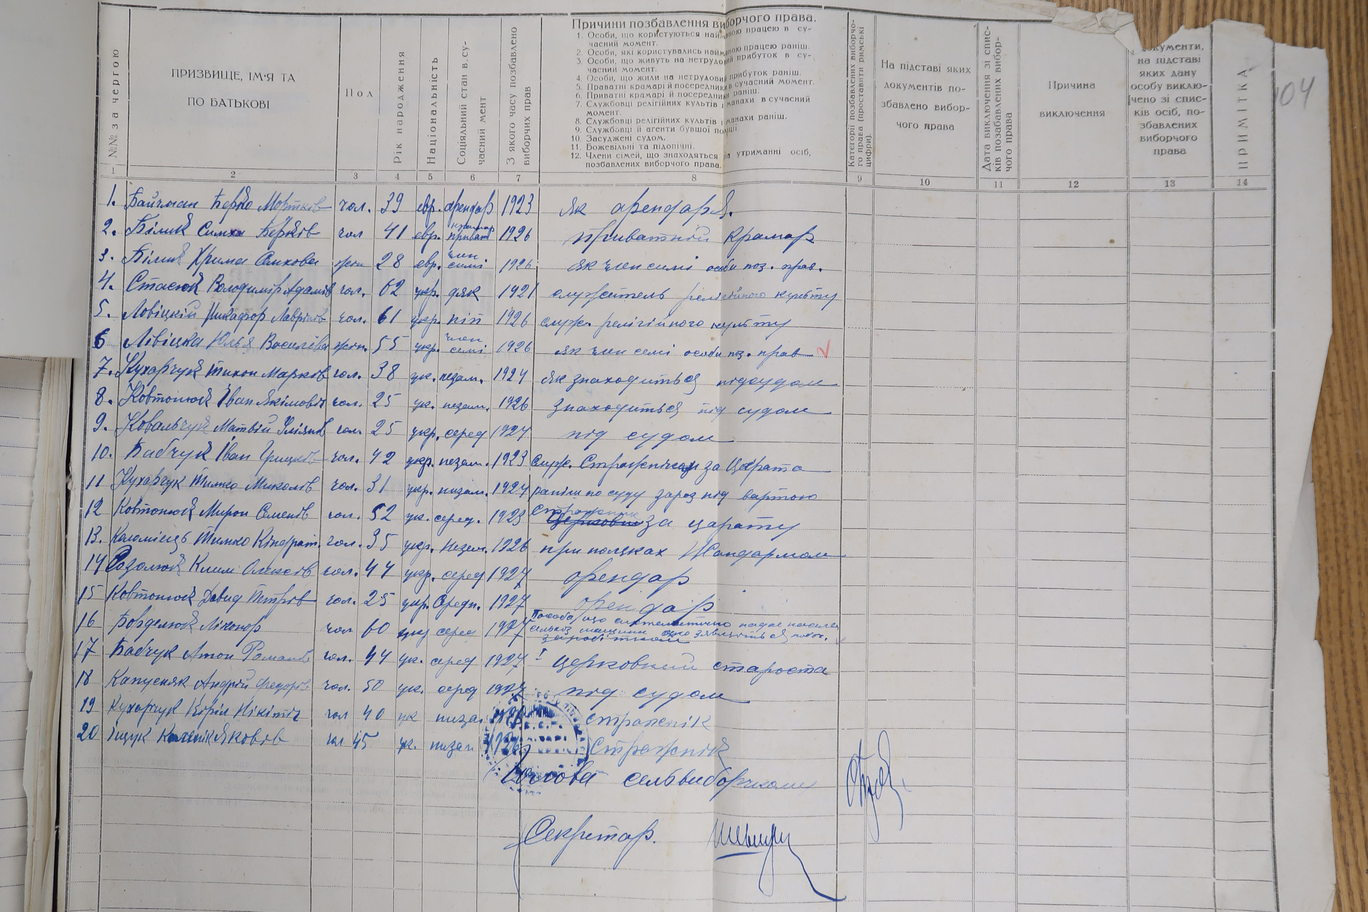 104
№№ за чергою
ПРИЗВИЩЕ, ІМ'Я ТА
ПО БАТЬКОВІ
Пол
Рік народження
Національність
Соціяльний стан в су-
часний мент
З якого часу позбавлено
виборчих прав
Причини позбавлення виборчого права.
1. Особи, що користуються найманою працею в су-
часний момент.
2. Особи, які користувались найманою працею раніш.
3. Особи, що живуть на нетрудовий прибуток в су-
часний момент.
4. Особи, що жили на нетрудовий прибуток раніш.
5. Приватні крамарі й посередники в сучасний момент.
6. Приватні крамарі й посередники раніш.
7. Службовці релігійних культів і манахи в сучасний
момент.
8. Службовці релігійних культів і манахи раніш.
9. Службовці й агенти бувшої поліції.
10. Засуджені судом.
11. Божевільні та підопічні.
12. Члени сімей, що знаходяться на утриманні осіб,
позбавлених виборчого права.
Категорії позбавлених виборчо-
го права (проставити римські
цифри).
На підставі яких
документів по-
збавлено вибор-
чого права
Дата виключення зі спис-
ків позабавлених вибор-
чого права
Причина
виключення
документи,
на підставі
яких дану
особу виклю-
чено зі спис-
ків осіб, по-
збавлених
виборчого
права
ПРИМІТКА
1 2 3 4 5 6 7 8 9 10 11 12 13 14
1. Байчман Берко Мотьков чол. 39 евр. орендар 1923 як орендар.
2. Білик Симха Берков чол 41 евр. приват 1926 приватний крамар
3. Білик Хрима Симхова жон 28 евр. член семі 1926 як член семі особи поз. прав.
4. Стасюк Володимір Адамів чол. 62 укр. дяк 1921 служитель релігійного культу
5. Лівіцкій Никафор Лаврінов чол. 61 укр. піп 1926 служ. релігійного культу
6. Лівіцка Юлья Василівна жон. 55 укр. член семі 1926 як член семі особи поз. прав
7. Кухарчук Тихон Марков чол. 38 ук. незам. 1924 як знаходиться підсудом
8. Ковтонюк Іван Якімович чол. 25 ук. незам. 1926 знаходиться під судом
9. Ковальчук Матвій чол 25 укр. серед 1927 під судом
10. Бабчук Іван Грицков чол. 42 укр. незам. 1923 служ. Стражніком за Царата
11 Кухарчук Тимко Миколов чол. 31 укр. незам. 1924 раніш по суду зараз під вартою
12 Ковтонюк Мирон Семенов чол. 52 ук. серед. 1923 стражник за царату
13. Коломієць Тимко Кіндрат. чол. 35 укр. незам. 1926 при поляках Жандармом
14 Клим Олексов чол. 44 укр. серед 1927 орендар
15 Ковтонюк Давид Петров чол. 25 укр. Средн. 1927 орендар
16 Ніконор чол 60 укр серед 1927
17 Бабчук Антон Романов чол. 44 ук. серед 1927 церковний староста
18 Капусняк Андрій Федоров чол. 50 ук. серед 1927 під судом
19 Кухарчук Кіріл Нікітіч чол 40 ук незам стражнік
20 Іщук Яковов чол 45 ук. незам 1926 Стражнік
Голова сельвиборчкому
Секретар.